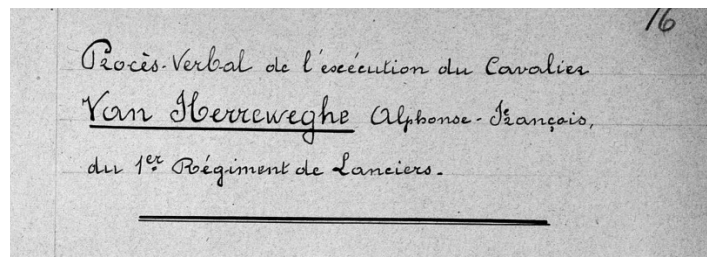 16
Procès-Verbal de l'exécution du Cavalier
Van Herreweghe Alphonse-François,
du 1er Régiment de Lanciers.